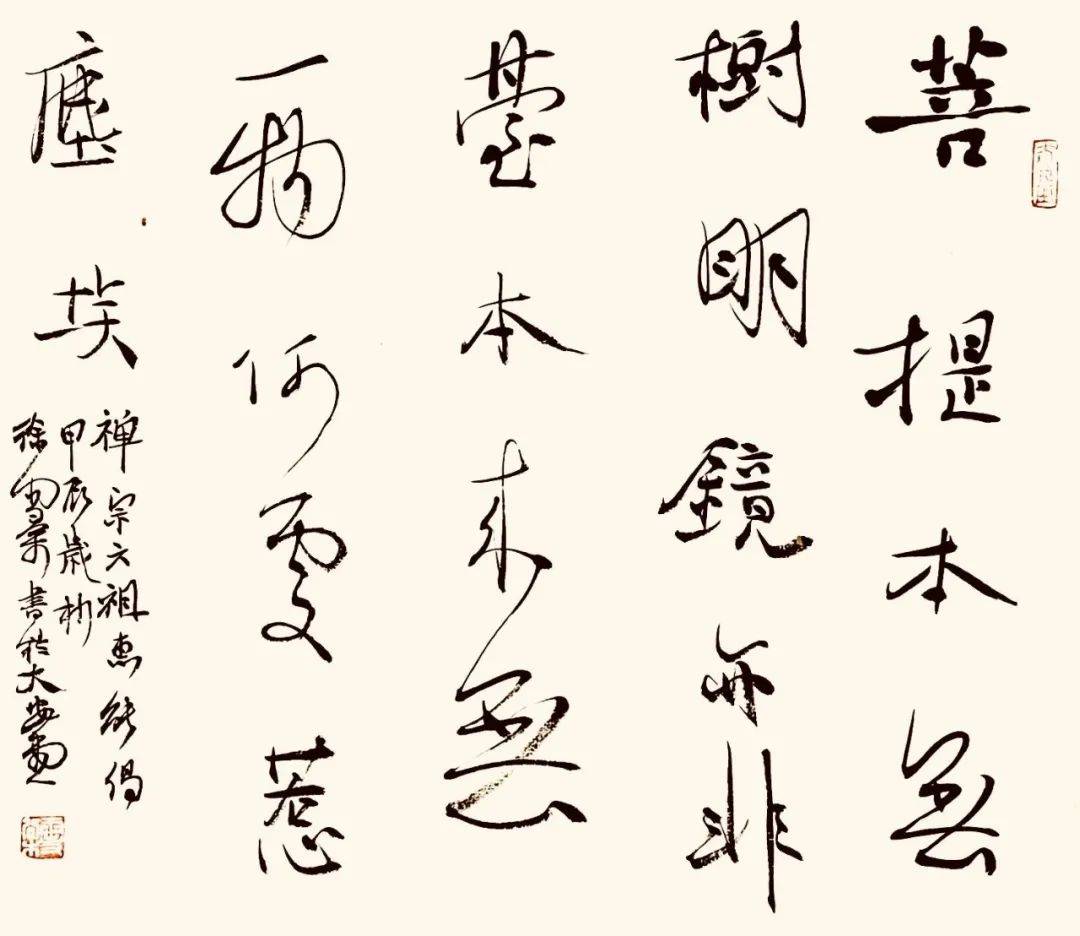 菩提本無
樹明鏡亦非
臺本来無
一物何處惹
塵埃
禅宗六祖惠能偈
甲辰歲杪
徐書於大